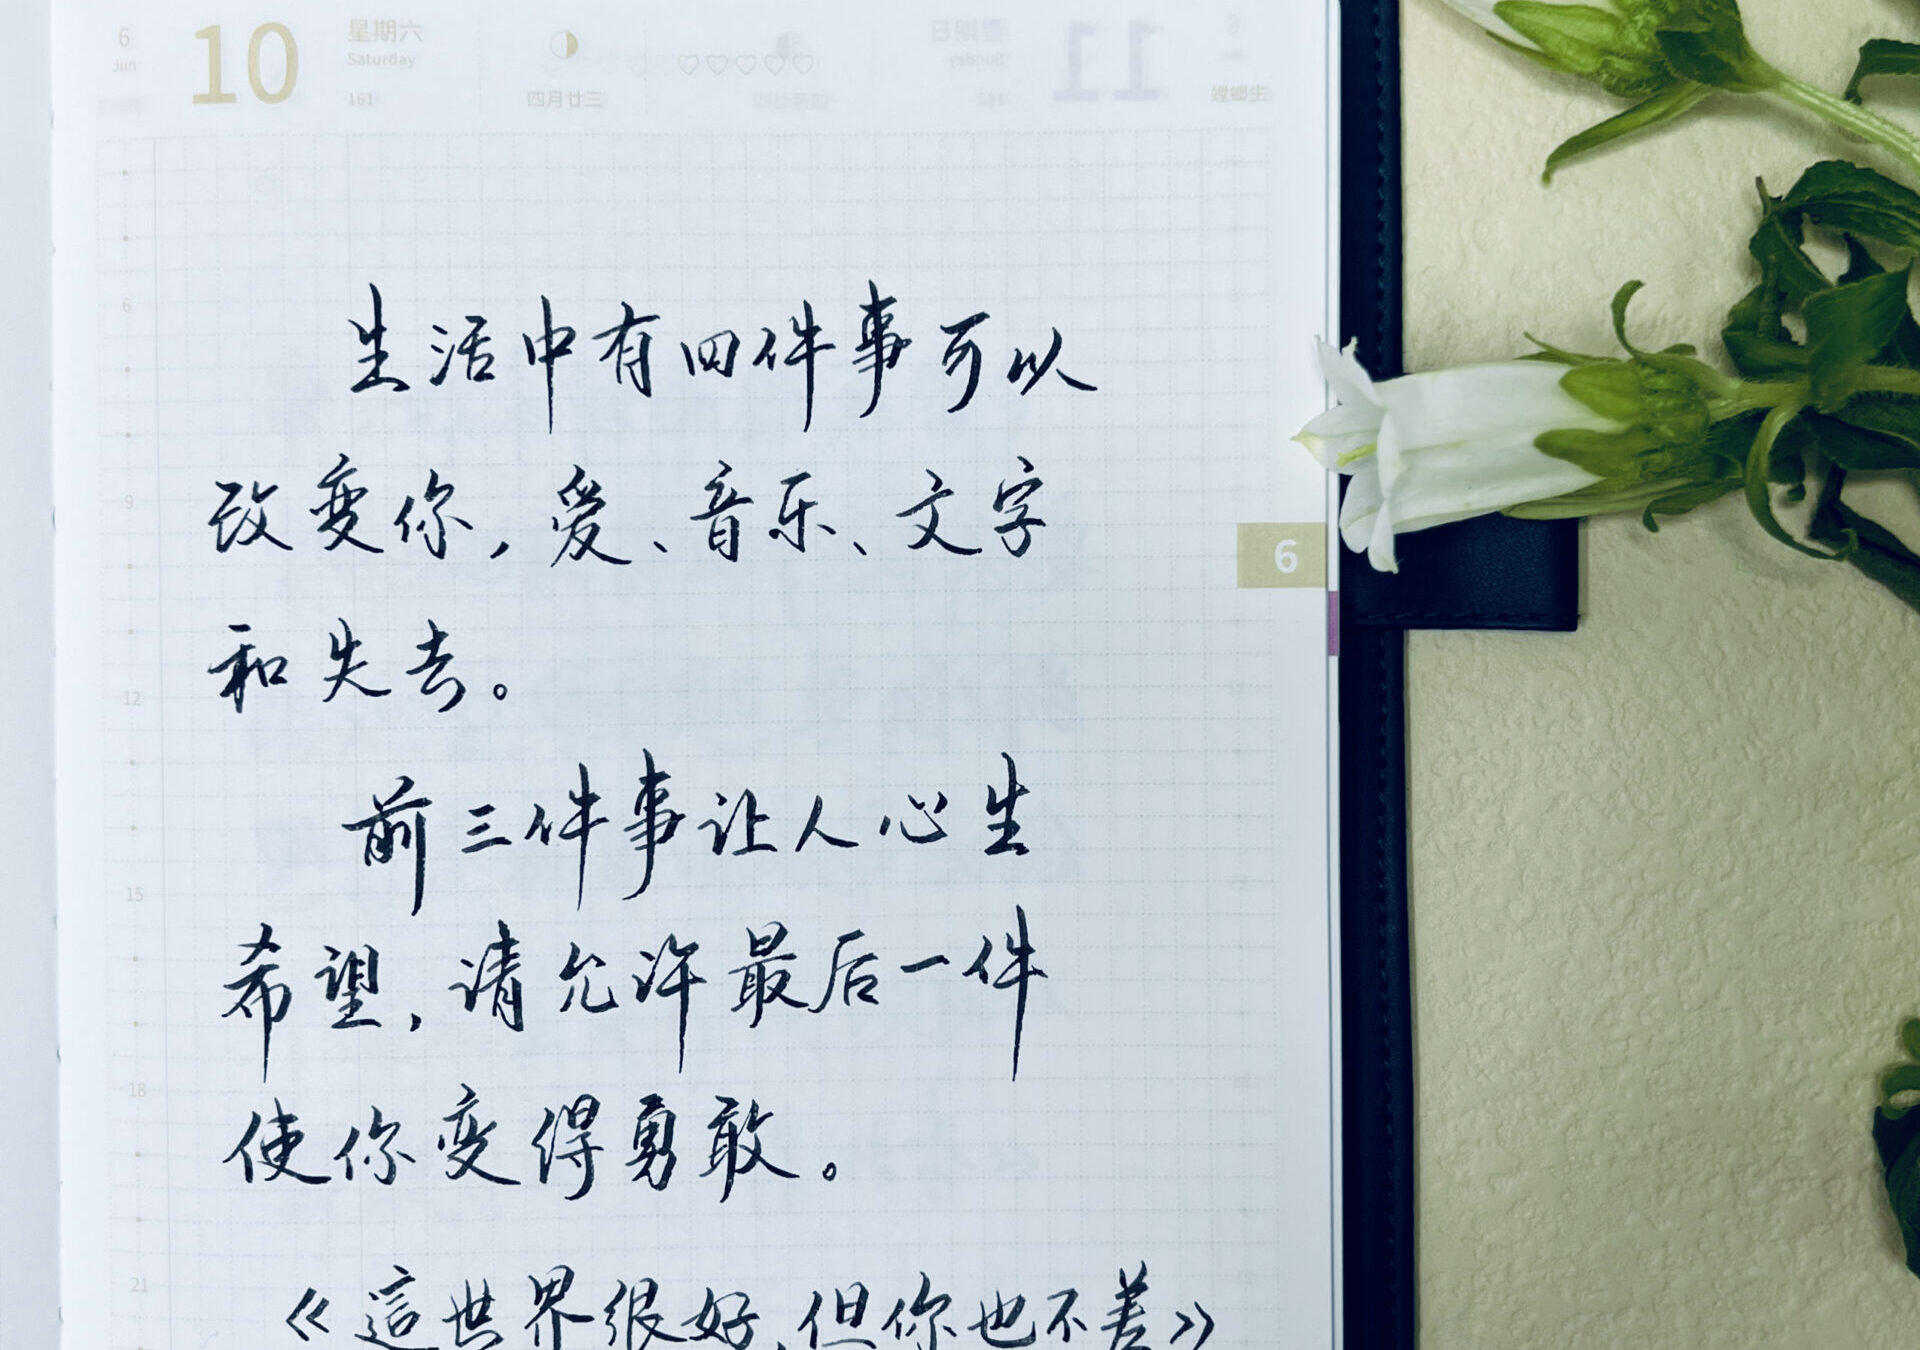 6 10 星期六
Jun Saturday
161 四月廿三 螳螂生
生活中有四件事可以
改变你，爱、音乐、文字
和失去。
前三件事让人心生
希望，请允许最后一件
使你变得勇敢。
《這世界很好，但你也不差》
6
6
9
12
15
18
21